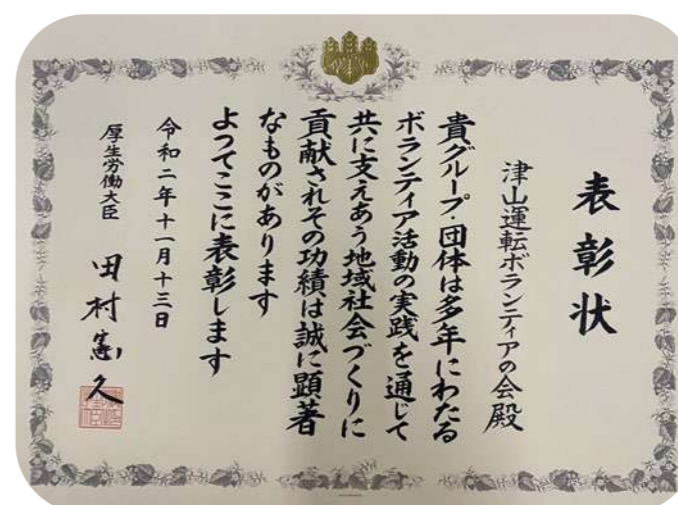 表彰状
津山運転ボランティアの会殿
貴グループ・団体は多年にわたる
ボランティア活動の実践を通じて
共に支えあう地域社会づくりに
貢献されその功績は誠に顕著
なものがあります
よってここに表彰します
令和二年十一月十三日
厚生労働大臣 田村憲久